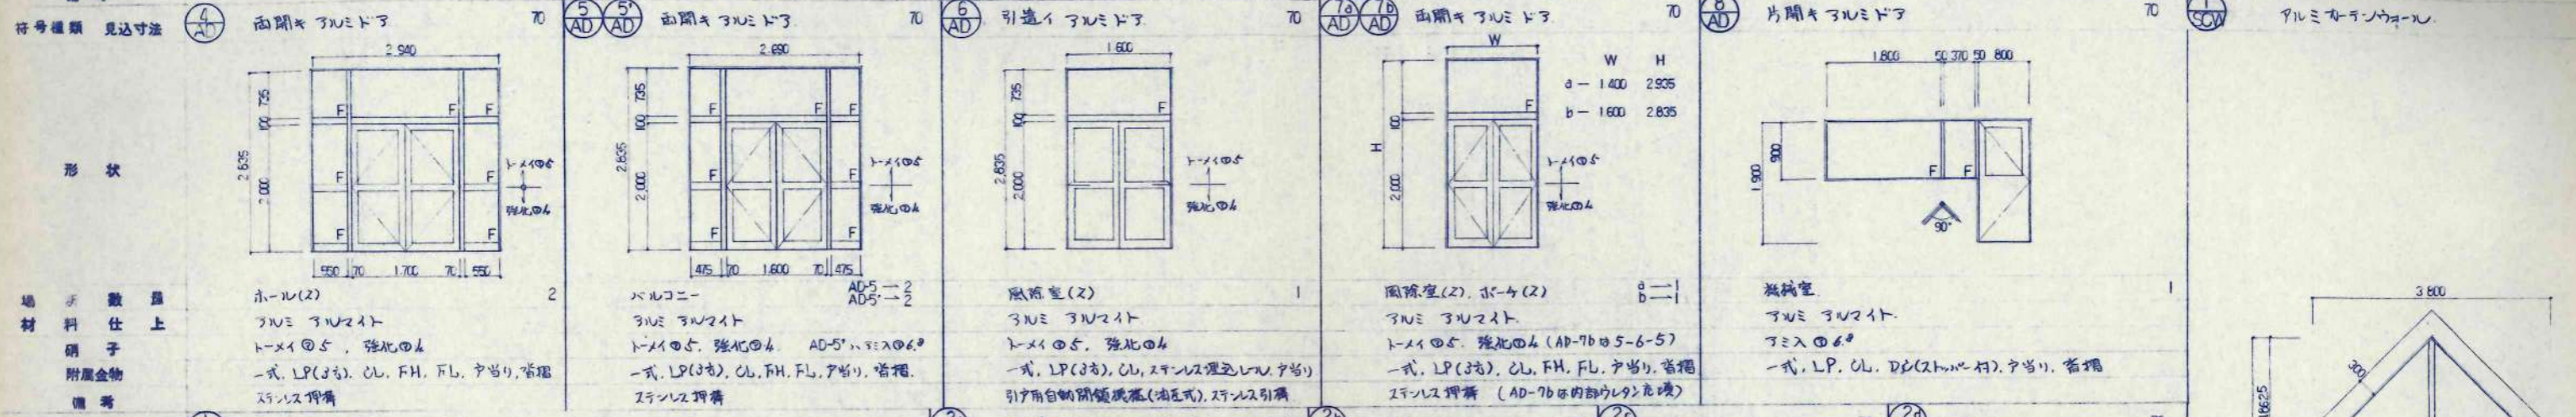 符号種類 見込寸法
形状
場所 数量
材料仕上
硝子
附属金物
備考
4
AD
両開キ アルミドア
70
2.940
735
100
2.000
2.835
F F F
F F
F F
トーメイ㋐5
強化㋐4
550 70 1.700 70 550
ホール(2)
2
アルミ アルマイト
トーメイ 5 , 強化 4
一式. LP(3方). CL. FH. FL. 戸当り. 沓摺
ステンレス押棒
5
AD
5'
AD
両開キ アルミドア
70
2.690
735
100
2.000
2.835
F F F
F F
F F
トーメイ 5
強化 4
475 70 1.600 70 475
バルコニー
AD-5 — 2
AD-5' — 2
アルミ アルマイト
トーメイ 5. 強化 4. AD-5' ハ アミ入 6.8
一式. LP(3方). CL. FH. FL. 戸当り. 沓摺.
ステンレス押棒
6
AD
引違イ アルミドア
70
1.600
735
100
2.000
2.835
F
トーメイ 5
強化 4
風除室(2)
1
アルミ アルマイト
トーメイ 5. 強化 4
一式. LP(3方). CL. ステンレス埋込レール. 戸当り
引戸用自動開鎖機構(油圧式). ステンレス引棒
7a
AD
7b
AD
両開キ アルミドア
70
W
W H
a — 1.400 2.935
b — 1.600 2.835
F
100
2.000
H
トーメイ 5
強化 4
風除室(2). ポーチ(2)
a — 1
b — 1
アルミ アルマイト.
トーメイ 5. 強化 4 (AD-7bは5-6-5)
一式. LP(3方). CL. FH. FL. 戸当り. 沓摺
ステンレス押棒 (AD-7bは内部ウレタン充填)
8
AD
片開キ アルミドア
70
1.800 50 370 50 800
900
1.900
F F
90°
機械室.
1
アルミ アルマイト.
アミ入 6.8
一式. LP. CL. DC(ストッパー付). 戸当り. 沓摺
1
SCW
アルミカーテンウォール.
3.800
300